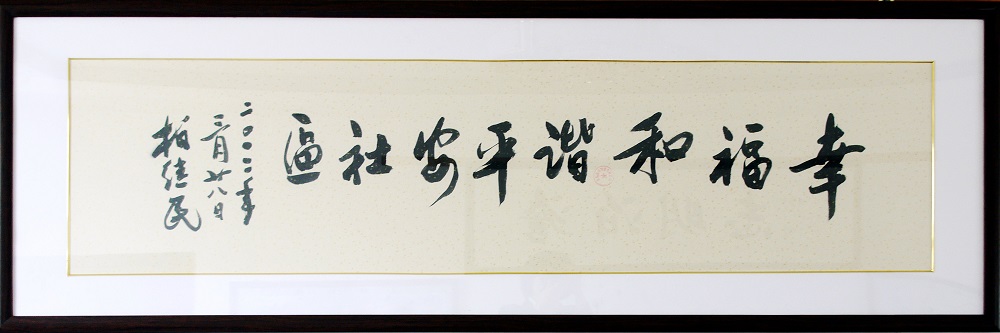 幸福和谐平安社區
二〇〇二年
三月廿八日
柏继民